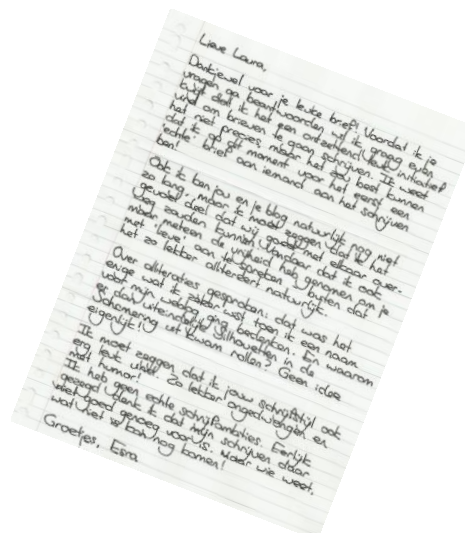 Lieve Laura,
Dankjewel voor je leuke brief! Voordat ik je
vragen ga beantwoorden wil ik graag even
kwijt dat ik het een ontzettend leuk initiatief
vind om brieven te gaan schrijven. Ik weet
het niet precies, maar het zou best kunnen
dat ik op dit moment voor het eerst een
'echte' brief aan iemand aan het schrijven
ben!
Ook ik ken jou en je blog natuurlijk nog niet
zo lang, maar ik moet zeggen dat ik het
gevoel deel dat wij goed met elkaar over-
weg zouden kunnen. Vandaar dat ik ook
maar meteen de vrijheid heb genomen om je
met 'Lieve' aan te spreken, buiten dat
het zo lekker allitereert natuurlijk.
Over alliteraties gesproken: dat was het
enige wat ik zeker wist toen ik een naam
voor mijn weblog ging bedenken. En waarom
er dan uiteindelijk Silhouetten in de
Schemering uit kwam rollen? Geen idee
eigenlijk!
Ik moet zeggen dat ik jouw schrijfstijl ook
erg leuk vind. Zo lekker ongedwongen en
met humor!
Ik heb geen echte schrijfambities. Eerlijk
gezegd denk ik dat mijn schrijven daar
niet goed genoeg voor is. Maar wie weet,
wat niet is kan nog komen!
Groetjes, Esra